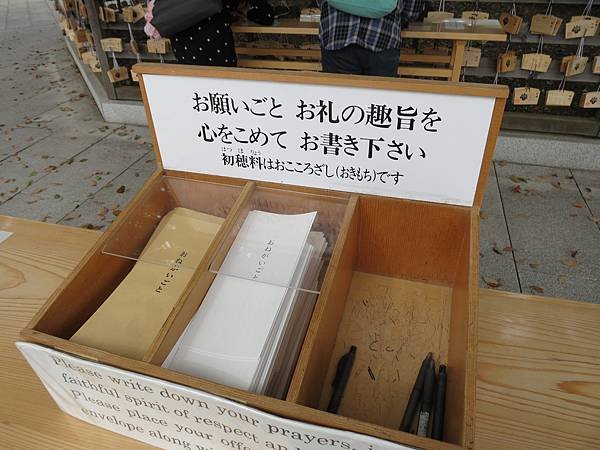 お願いごと お礼の趣旨を
心をこめて お書き下さい
はつ ほ りょう
初穂料はおこころざし(おきもち)です
おねがいごと
おねがいごと
Please write down your prayers, i
faithful spirit of respect and
Please place your offe
envelope along w